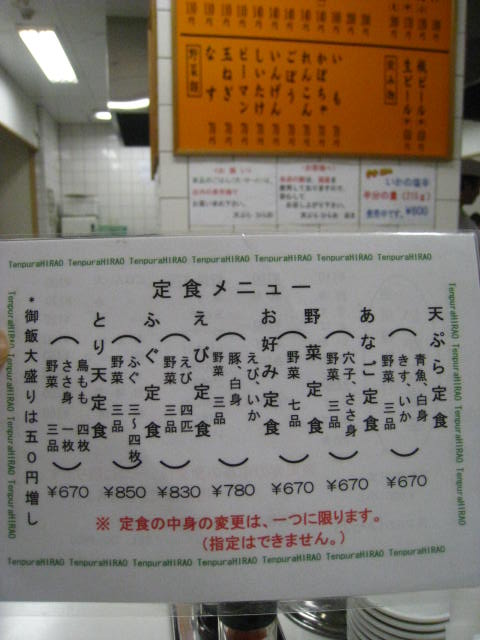 野菜類
なす
玉ねぎ
ピーマン
しいたけ
いんげん
ごぼう
れんこん
かぼちゃ
いも
生ビール
いかの塩辛
¥600
TenpuraHIRAO TenpuraHIRAO TenpuraHIRAO TenpuraHIRAO TenpuraHIRAO TenpuraHIRAO
定食メニュー
天ぷら定食
(青魚、白身
きす、いか
野菜 三品)
¥670
あなご定食
(穴子、ささ身
野菜 三品)
¥670
野菜定食
(野菜 七品)
¥670
お好み定食
(えび、いか
豚、白身
野菜 三品)
¥780
えび定食
(えび 四匹
野菜 三品)
¥830
ふぐ定食
(ふぐ 三〜四枚
野菜 三品)
¥850
とり天定食
(鳥もも 四枚
ささ身 一枚
野菜 三品)
¥670
*御飯大盛りは五0円増し
※ 定食の中身の変更は、一つに限ります。
(指定はできません。)
TenpuraHIRAO TenpuraHIRAO TenpuraHIRAO TenpuraHIRAO TenpuraHIRAO TenpuraHIRAO TenpuraHIRAO
TenpuraHIRAO TenpuraHIRAO TenpuraHIRAO TenpuraHIRAO
TenpuraHIRAO TenpuraHIRAO TenpuraHIRAO TenpuraHIRAO